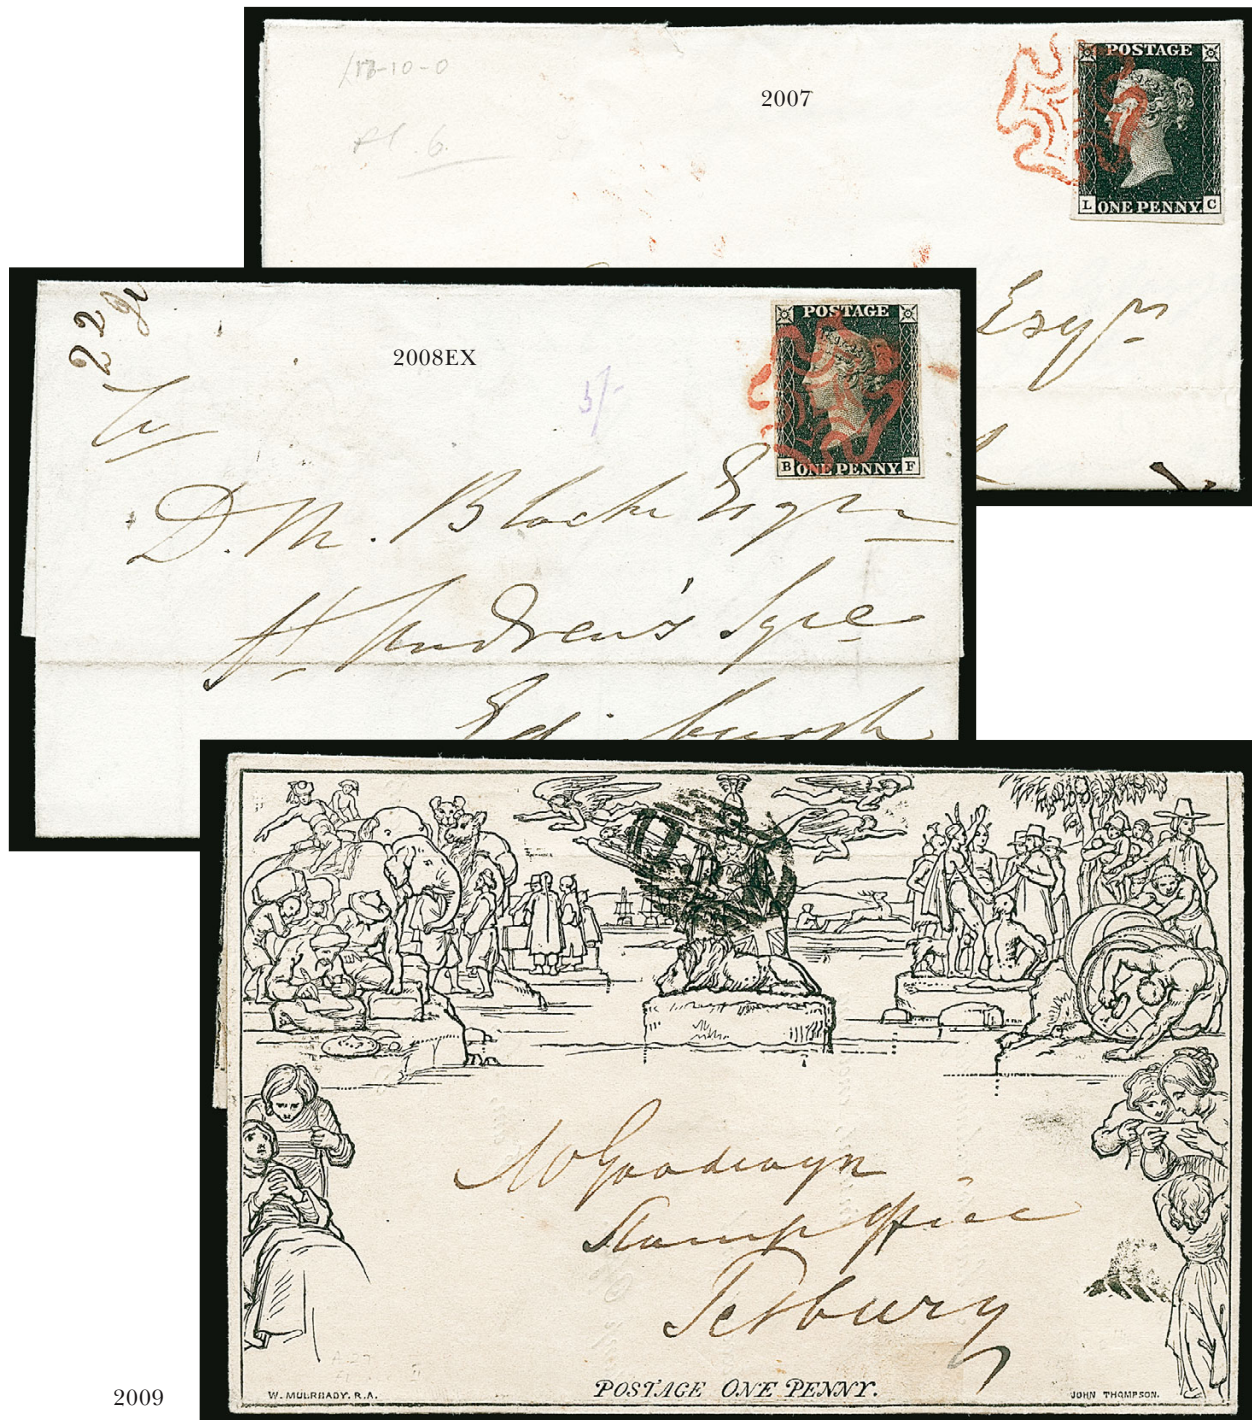 /18-10-0
2007
POSTAGE
L ONE PENNY. C
6.
Esqr
22
2008EX
5/-
POSTAGE
B ONE PENNY F
D. M. Black Esqre
St Andrew's Sqre
Edinburgh
Mr Goodwyn
Stamp Office
Tetbury
W. MULREADY. R.A.
POSTAGE ONE PENNY.
JOHN THOMPSON.
2009